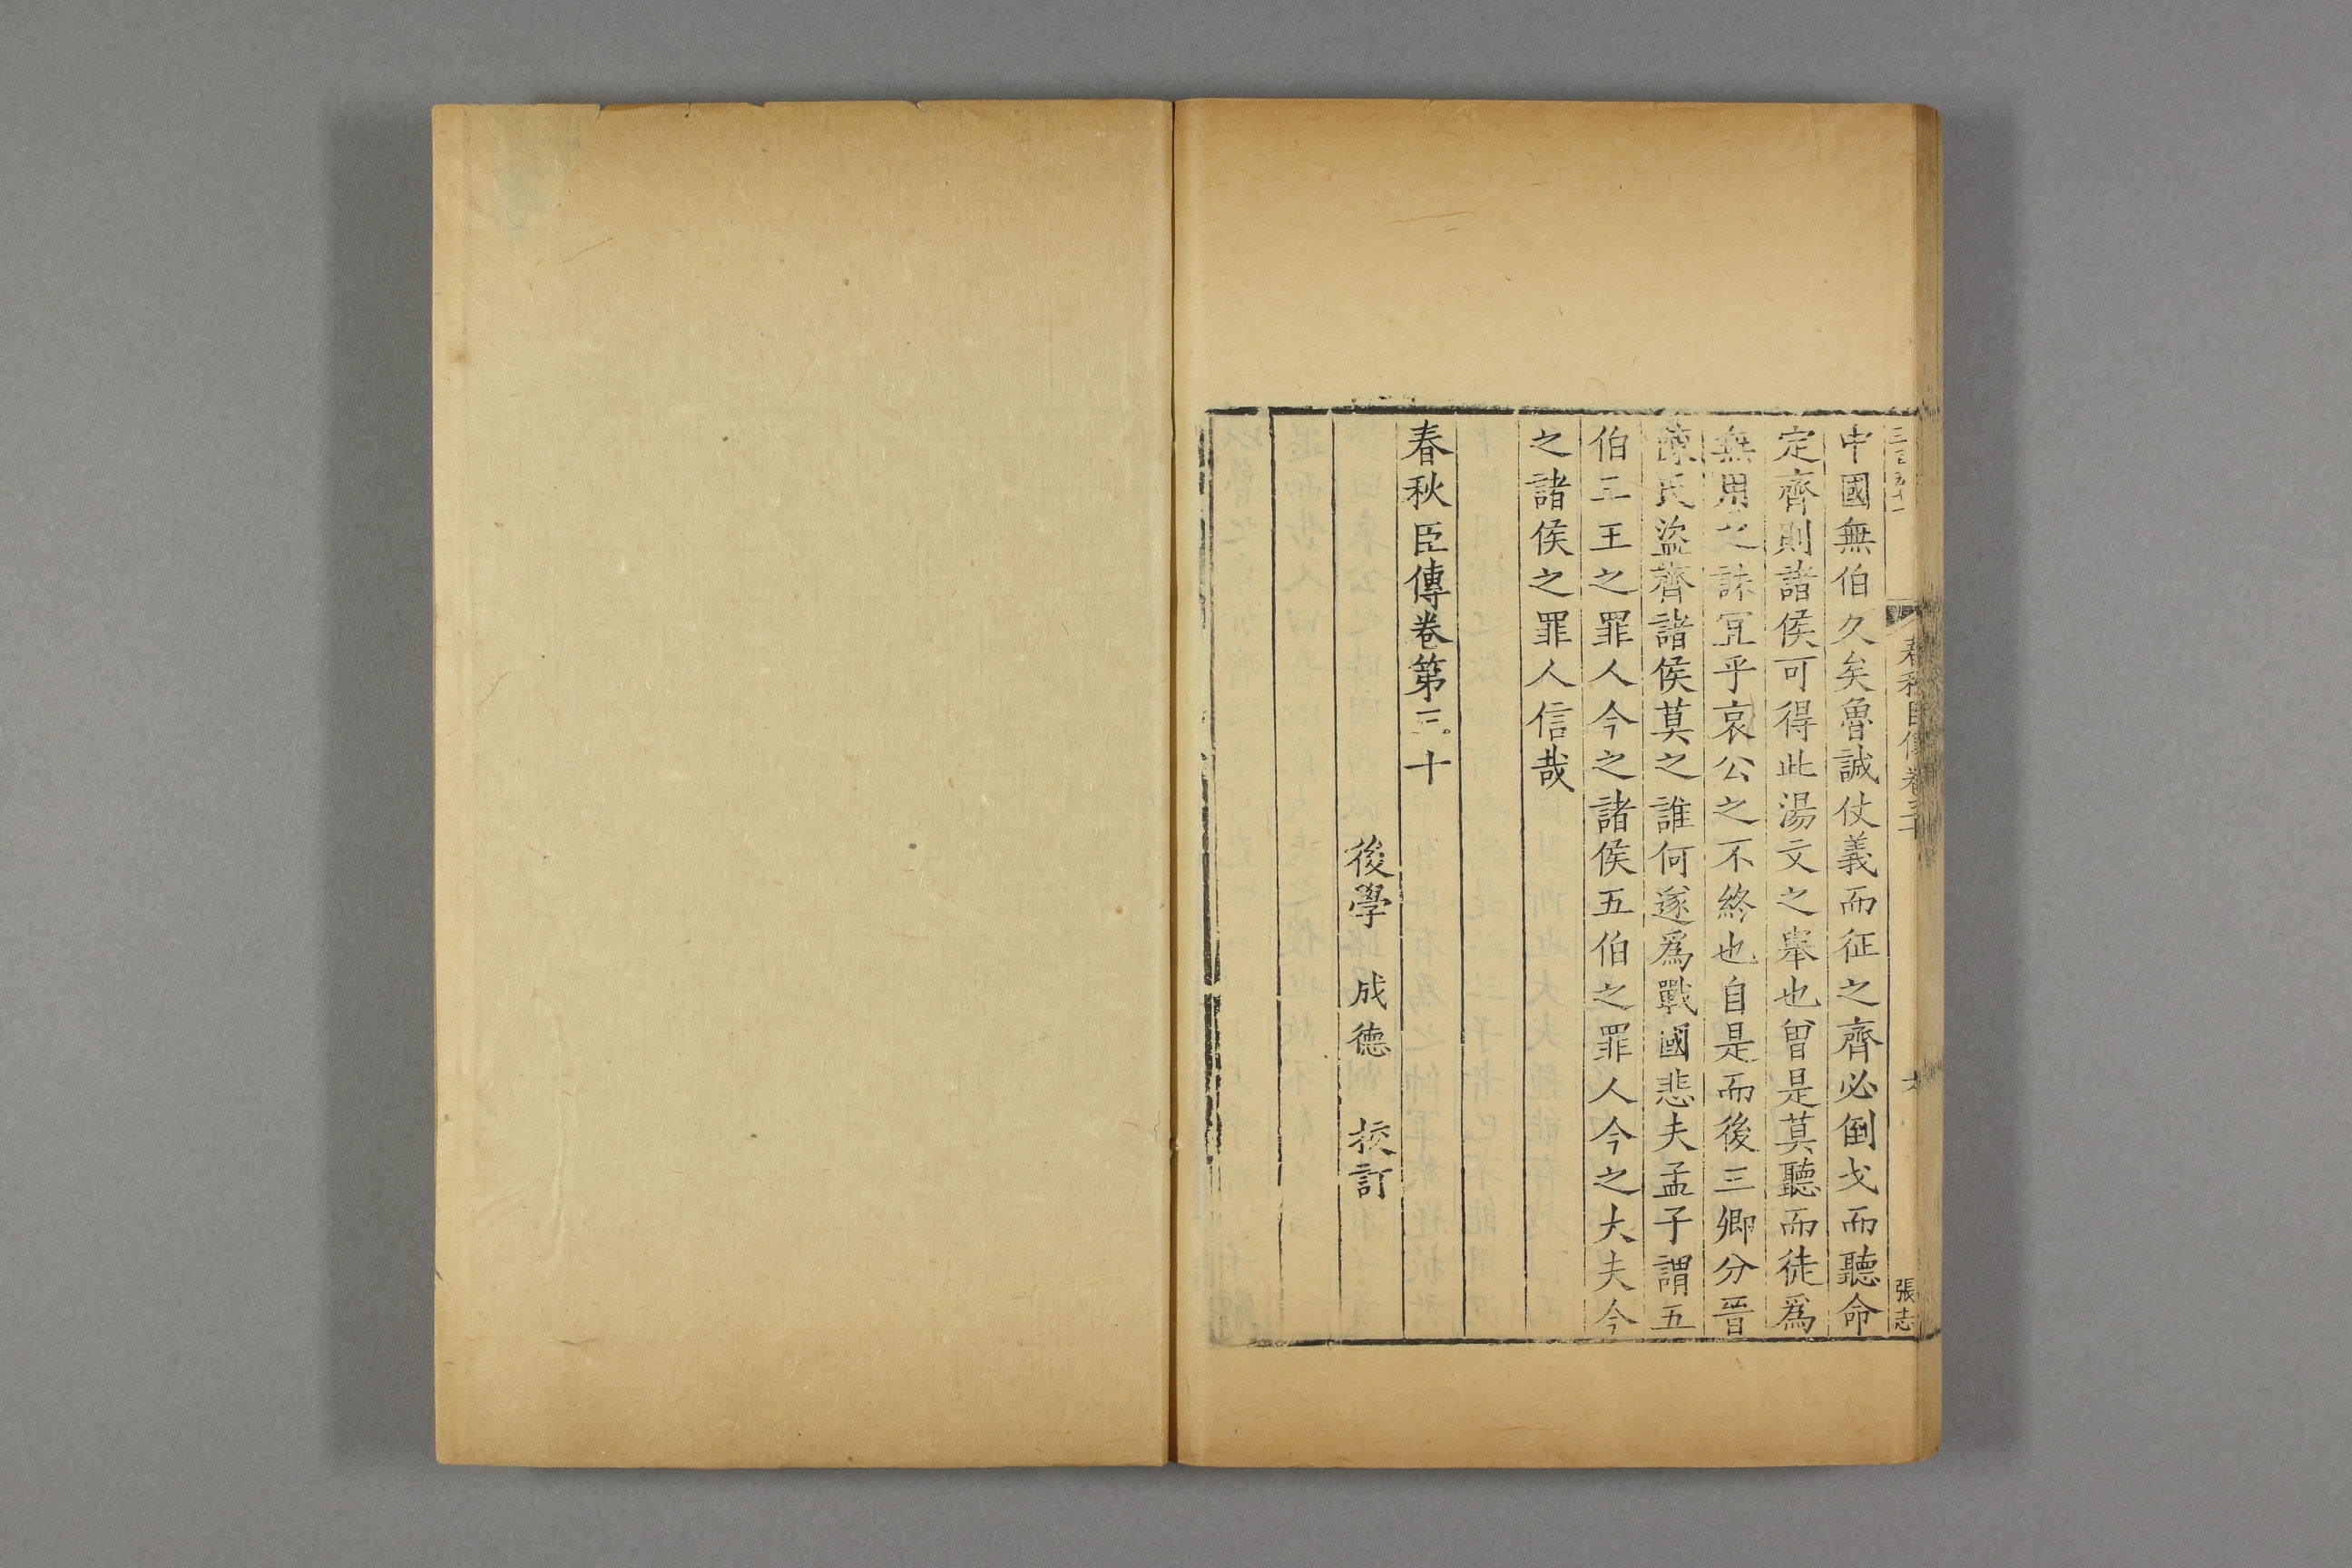 中國無伯久矣魯誠仗義而征之齊必倒戈而聽命
定齊則諸侯可得此湯文之舉也曾是莫聽而徒為
無用之誅冝乎哀公之不終也自是而後三卿分晉
陳氏盜齊諸侯莫之誰何遂為戰國悲夫孟子謂五
伯三王之罪人今之諸侯五伯之罪人今之大夫今
之諸侯之罪人信哉
春秋臣傳卷第三十
後學 成德 校訂
春秋臣傳卷三十
張志